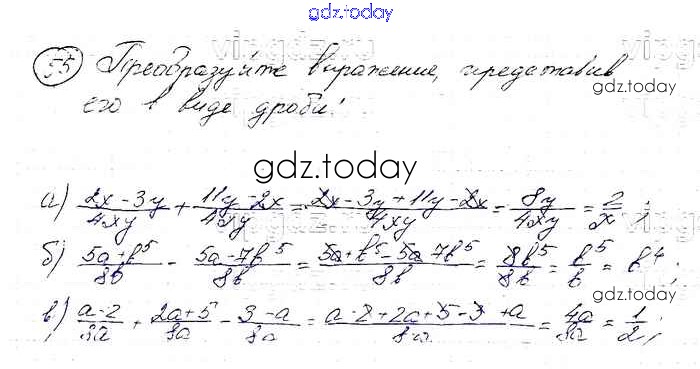 gdz.today
55 Преобразуйте выражение, представив
gdz.today
его в виде дроби:
gdz.today
а) (2x - 3y)/(4xy) + (11y - 2x)/(4xy) = (2x - 3y + 11y - 2x)/(4xy) = 8y/(4xy) = 2/x ;
б) (5a + b⁵)/(8b) - (5a - 7b⁵)/(8b) = (5a + b⁵ - 5a 7b⁵)/(8b) = 8b⁵/(8b) = b⁵/b = b⁴ ;
gdz.today
в) (a - 2)/(8a) + (2a + 5)/(8a) - (3 - a)/(8a) = (a - 2 + 2a + 5 - 3 + a)/(8a) = 4a/(8a) = 1/2 ;